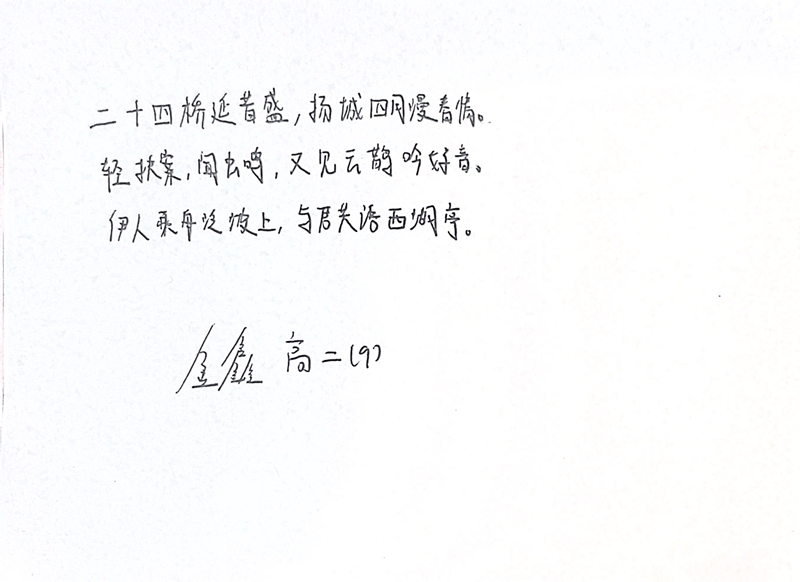 二十四桥延昔盛，扬城四月漫春情。
轻扶案，闻虫鸣，又见云鹊吟好音。
伊人乘舟泛波上，与君共语西湖亭。
金鑫 高二(9)